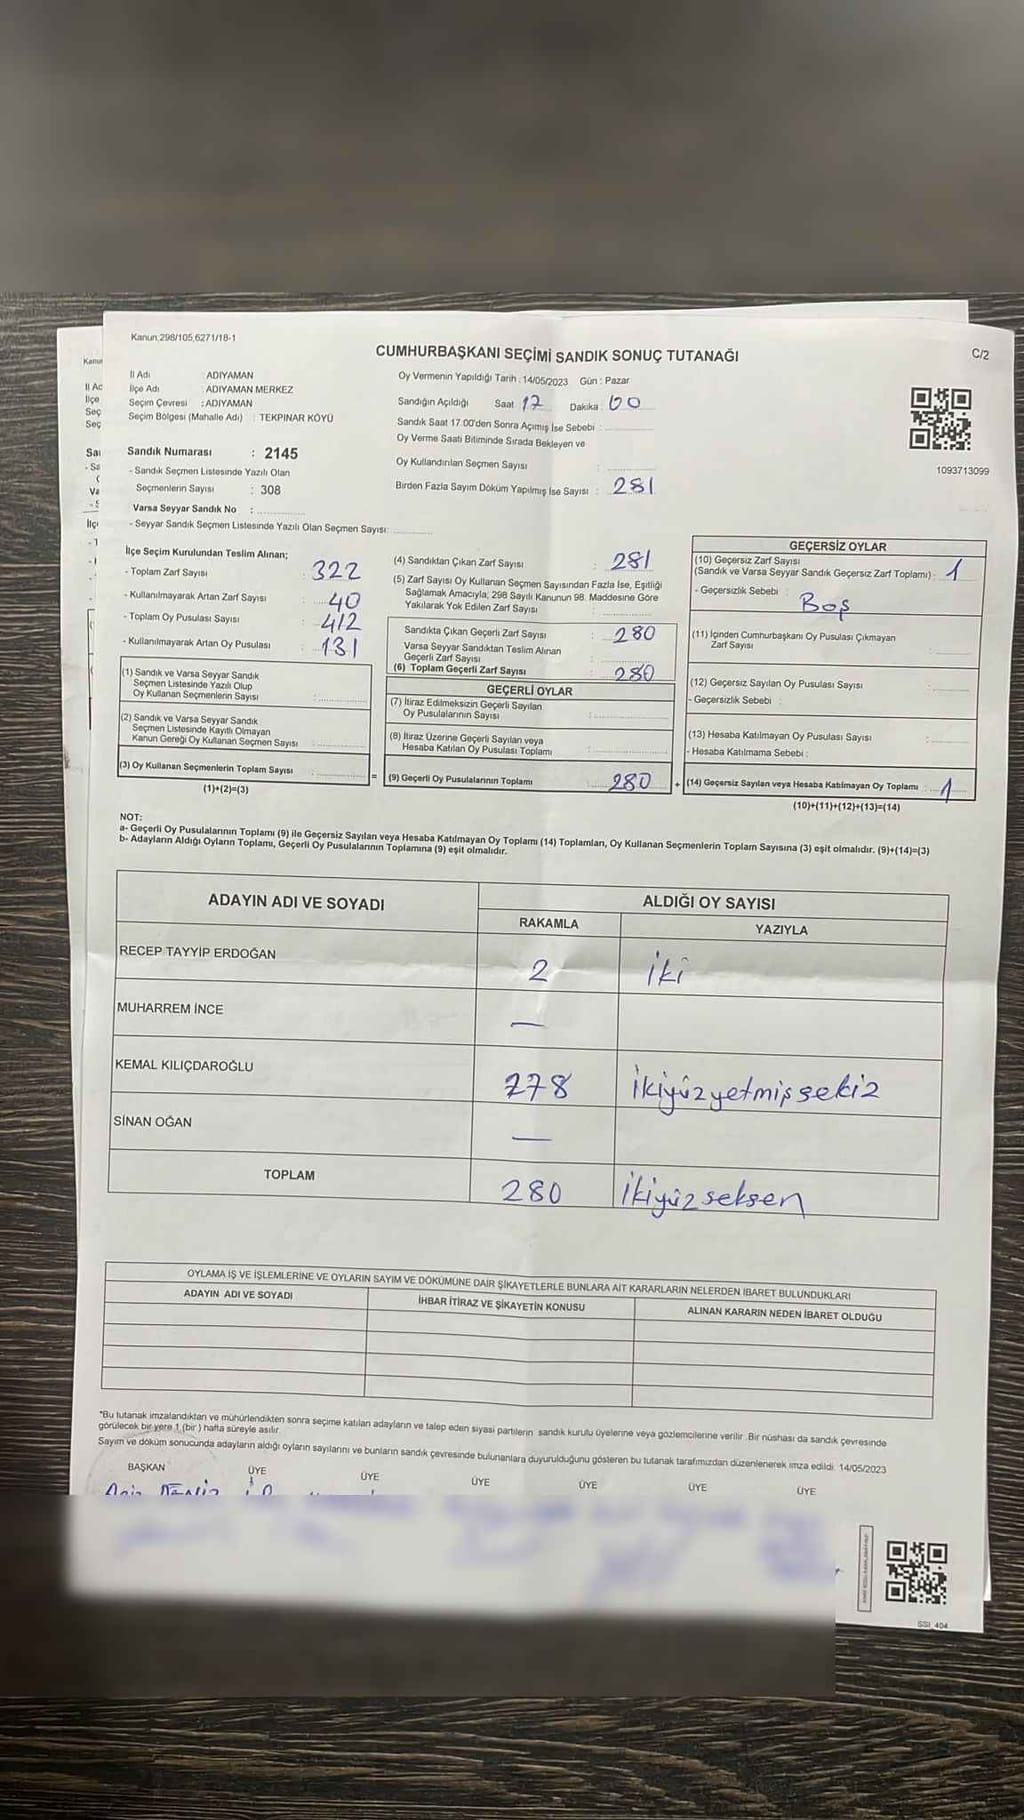 Kanun,298/105,6271/18-1
CUMHURBAŞKANI SEÇİMİ SANDIK SONUÇ TUTANAĞI
C/2
Kanu
İl Adı : ADIYAMAN
İlçe Adı : ADIYAMAN MERKEZ
Seçim Çevresi : ADIYAMAN
Seçim Bölgesi (Mahalle Adı) : TEKPINAR KÖYÜ
Oy Vermenin Yapıldığı Tarih : 14/05/2023 Gün : Pazar
Sandığın Açıldığı Saat 17 Dakika : 00
Sandık Saat 17.00'den Sonra Açımış İse Sebebi :
Oy Verme Saati Bitiminde Sırada Bekleyen ve
Oy Kullandırılan Seçmen Sayısı :
Birden Fazla Sayım Döküm Yapılmış İse Sayısı : 281
1093713099
Sandık Numarası : 2145
- Sandık Seçmen Listesinde Yazılı Olan
Seçmenlerin Sayısı : 308
Varsa Seyyar Sandık No :
- Seyyar Sandık Seçmen Listesinde Yazılı Olan Seçmen Sayısı:
İlçe Seçim Kurulundan Teslim Alınan;
- Toplam Zarf Sayısı : 322
- Kullanılmayarak Artan Zarf Sayısı : 40
- Toplam Oy Pusulası Sayısı : 412
- Kullanılmayarak Artan Oy Pusulası : 131
(1) Sandık ve Varsa Seyyar Sandık
Seçmen Listesinde Yazılı Olup
Oy Kullanan Seçmenlerin Sayısı :
(2) Sandık ve Varsa Seyyar Sandık
Seçmen Listesinde Kayıtlı Olmayan
Kanun Gereği Oy Kullanan Seçmen Sayısı :
(3) Oy Kullanan Seçmenlerin Toplam Sayısı :
(1)+(2)=(3)
(4) Sandıktan Çıkan Zarf Sayısı : 281
(5) Zarf Sayısı Oy Kullanan Seçmen Sayısından Fazla İse, Eşitliği
Sağlamak Amacıyla, 298 Sayılı Kanunun 98. Maddesine Göre
Yakılarak Yok Edilen Zarf Sayısı :
Sandıkta Çıkan Geçerli Zarf Sayısı : 280
Varsa Seyyar Sandıktan Teslim Alınan
Geçerli Zarf Sayısı :
(6) Toplam Geçerli Zarf Sayısı : 280
GEÇERLİ OYLAR
(7) İtiraz Edilmeksizin Geçerli Sayılan
Oy Pusulalarının Sayısı :
(8) İtiraz Üzerine Geçerli Sayılan veya
Hesaba Katılan Oy Pusulası Toplamı :
= (9) Geçerli Oy Pusulalarının Toplamı : 280 +
GEÇERSİZ OYLAR
(10) Geçersiz Zarf Sayısı
(Sandık ve Varsa Seyyar Sandık Geçersiz Zarf Toplamı) : 1
- Geçersizlik Sebebi : Boş
(11) İçinden Cumhurbaşkanı Oy Pusulası Çıkmayan
Zarf Sayısı :
(12) Geçersiz Sayılan Oy Pusulası Sayısı :
- Geçersizlik Sebebi :
(13) Hesaba Katılmayan Oy Pusulası Sayısı :
- Hesaba Katılmama Sebebi :
(14) Geçersiz Sayılan veya Hesaba Katılmayan Oy Toplamı : 1
(10)+(11)+(12)+(13)=(14)
NOT:
a- Geçerli Oy Pusulalarının Toplamı (9) ile Geçersiz Sayılan veya Hesaba Katılmayan Oy Toplamı (14) Toplamları, Oy Kullanan Seçmenlerin Toplam Sayısına (3) eşit olmalıdır. (9)+(14)=(3)
b- Adayların Aldığı Oyların Toplamı, Geçerli Oy Pusulalarının Toplamına (9) eşit olmalıdır.
ADAYIN ADI VE SOYADI
ALDIĞI OY SAYISI
RAKAMLA YAZIYLA
RECEP TAYYİP ERDOĞAN 2 iki
MUHARREM İNCE —
KEMAL KILIÇDAROĞLU 278 ikiyüzyetmişsekiz
SİNAN OĞAN —
TOPLAM 280 ikiyüzseksen
OYLAMA İŞ VE İŞLEMLERİNE VE OYLARIN SAYIM VE DÖKÜMÜNE DAİR ŞİKAYETLERLE BUNLARA AİT KARARLARIN NELERDEN İBARET BULUNDUKLARI
ADAYIN ADI VE SOYADI
İHBAR İTİRAZ VE ŞİKAYETİN KONUSU
ALINAN KARARIN NEDEN İBARET OLDUĞU
*Bu tutanak imzalandıktan ve mühürlendikten sonra seçime katılan adayların ve talep eden siyasi partilerin sandık kurulu üyelerine veya gözlemcilerine verilir .Bir nüshası da sandık çevresinde
görülecek bir yere 1 (bir ) hafta süreyle asılır.
Sayım ve döküm sonucunda adayların aldığı oyların sayılarını ve bunların sandık çevresinde bulunanlara duyurulduğunu gösteren bu tutanak tarafımızdan düzenlenerek imza edildi. 14/05/2023
BAŞKAN ÜYE ÜYE ÜYE ÜYE ÜYE ÜYE
SSI_404